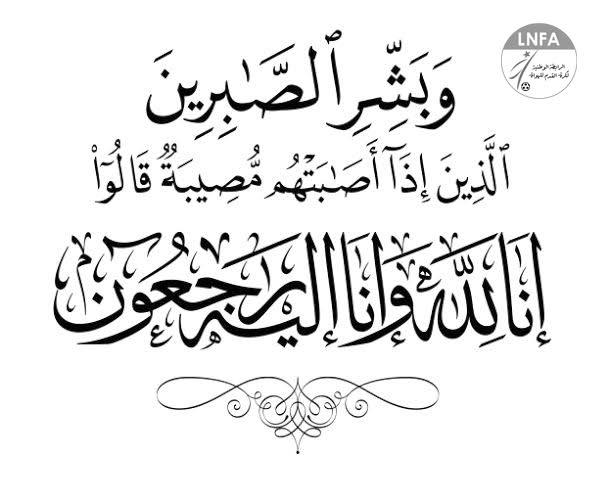 LNFA
الرابطة الوطنية
لكرة القدم للهواة
وَبَشِّرِ ٱلصَّٰبِرِينَ
ٱلَّذِينَ إِذَآ أَصَٰبَتْهُم مُّصِيبَةٌ قَالُوٓاْ
إنا لله وإنا إليه راجعون